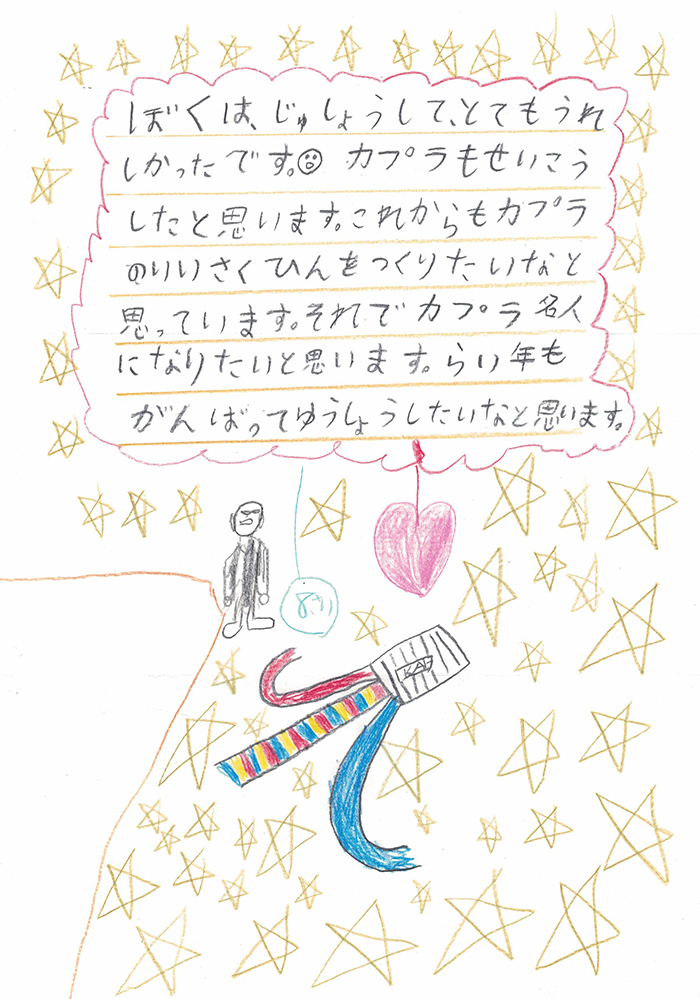 ぼくは、じゅしょうして、とてもうれ
しかったです。カプラもせいこう
したと思います。これからもカプラ
のいいさくひんをつくりたいなと
思っています。それでカプラ名人
になりたいと思います。らい年も
がんばってゆうしょうしたいなと思います。